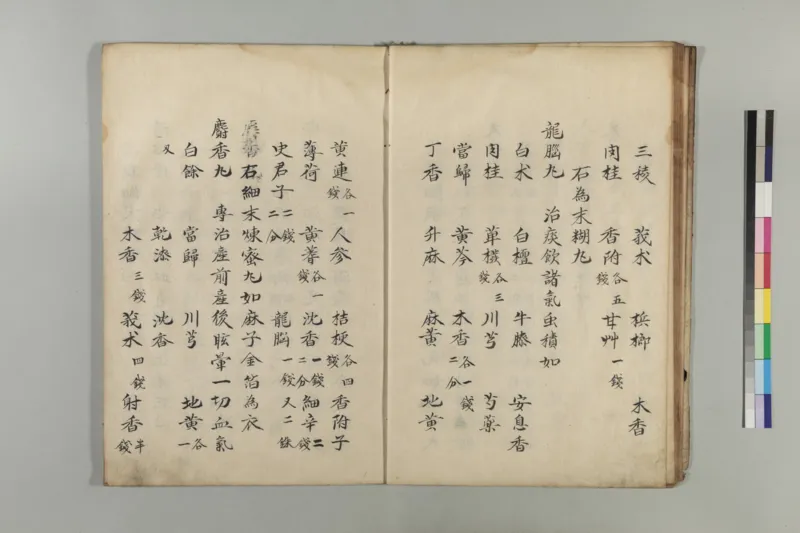 三稜 莪朮 梹榔 木香
肉桂 香附各五錢 甘艸一錢
石為末糊丸
龍脳丸 治痰飲諸氣虫積如
白朮 白檀 牛膝 安息香
肉桂 華橃各三錢 川芎 芍薬
當歸 黄芩 木香各一錢二分
丁香 升麻 麻黄 地黄
黄連各一錢 人参 桔梗各四錢 香附子
薄荷 黄蓍各一錢 沈香一錢二分 細辛二錢
史君子二錢二分 龍脳一錢又二銖
石細末煉蜜丸如麻子金箔為衣
麝香丸 專治産前産後眩暈一切血氣
白餘 當歸 川芎 地黄各一
又 乾漆 沈香
木香三錢 莪朮四錢 射香半錢